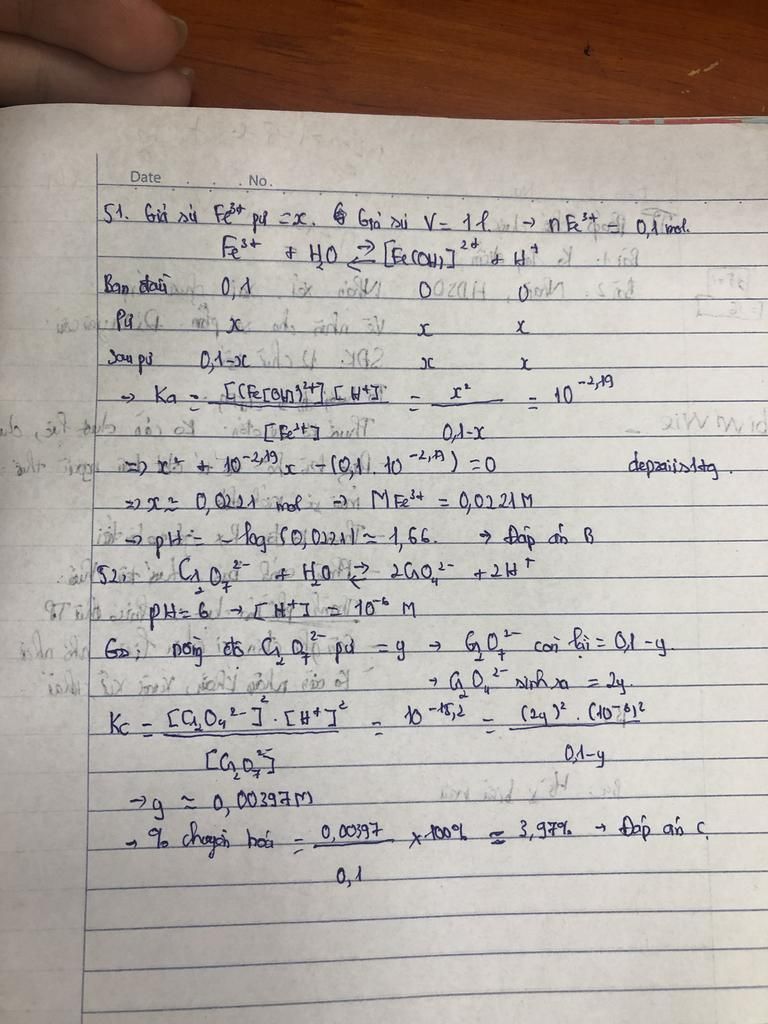 Date . . . . No.
51. Giả sử Fe³⁺ pư = x. Giả sử V = 1 l. → nFe³⁺ = 0,1 mol.
Fe³⁺ + H₂O ⇌ [Fe(OH)]²⁺ + H⁺
Ban đầu 0,1 0 0
Pư x x x
Sau pư 0,1-x x x
→ Ka = [(Fe(OH)²⁺] [H⁺] / [Fe³⁺] = x² / 0,1-x = 10^-2,19
=> x² + 10^-2,19 x - (0,1 . 10^-2,19) = 0
=> x ≈ 0,0221 mol → M Fe³⁺ = 0,0221 M
→ pH = - log(0,0221) ≈ 1,66. → Đáp án B
52. Cr₂O₇²⁻ + H₂O ⇌ 2CrO₄²⁻ + 2H⁺
pH = 6 → [H⁺] = 10⁻⁶ M
Gs: nồng độ Cr₂O₇²⁻ pư = y → Cr₂O₇²⁻ còn lại = 0,1 - y.
→ Cr₂O₄²⁻ sinh ra = 2y.
Kc = [Cr₂O₄²⁻]² . [H⁺]² / [Cr₂O₇²⁻] = 10^-15,2 = (2y)² . (10⁻⁶)² / 0,1-y
→ y ≈ 0,00397M
→ % chuyển hoá = 0,00397 / 0,1 × 100% ≈ 3,97% → Đáp án C.